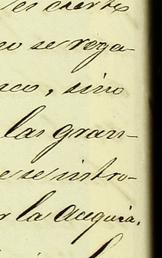 es cierto
no se rega-
sco, sino
las gran-
e se intro-
r la acequia.